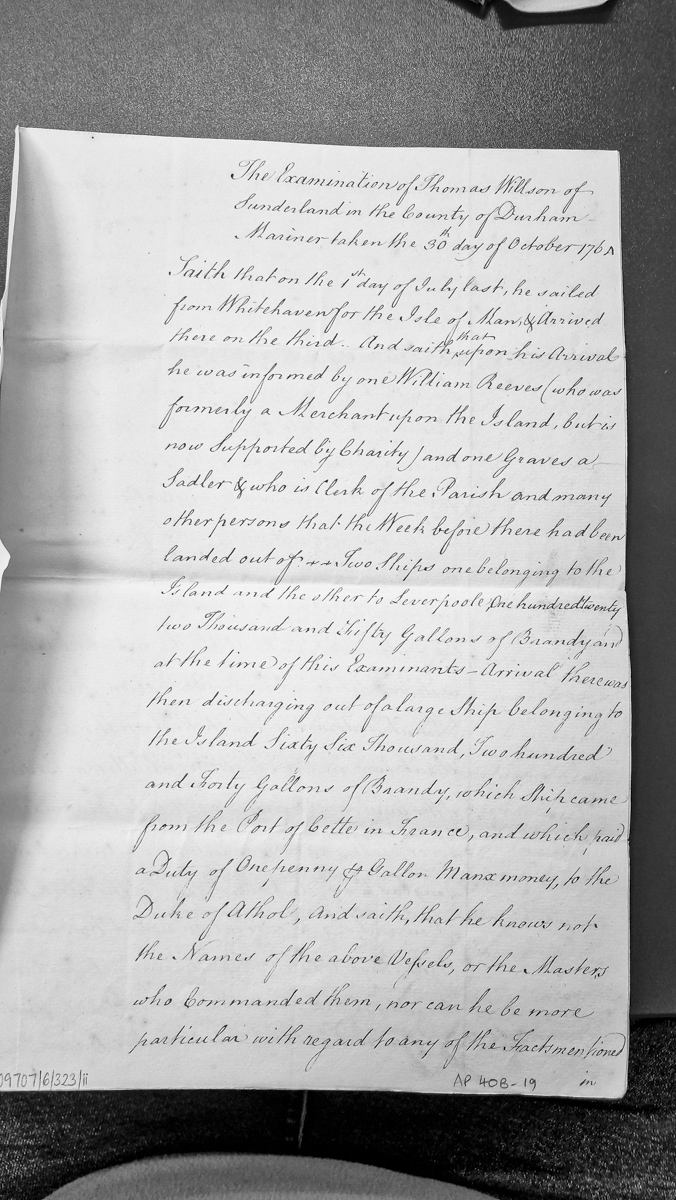 The Examination of Thomas Willson of
Sunderland in the County of Durham
Mariner taken the 30th day of October 1764
Saith that on the 1st day of July last, he sailed
from Whitehaven for the Isle of Man, & Arrived
there on the third. And saith that upon his Arrival
he was informed by one William Reeves (who was
formerly a Merchant upon the Island, but is
now Supported by Charity) and one Graves a
Sadler & who is Clerk of the Parish and many
other persons that the Week before there had been
landed out of Two Ships one belonging to the
Island and the other to Leverpoole One hundred twenty
two Thousand and Fifty Gallons of Brandy and
at the time of this Examinants Arrival there was
then discharging out of a large Ship belonging to
the Island Sixty Six Thousand, Two hundred
and Forty Gallons of Brandy, which Ship came
from the Port of Cette in France, and which paid
a Duty of One penny ⅌ Gallon Manx money, to the
Duke of Athol, And saith, that he knows not
the Names of the above Vessels, or the Masters
who Commanded them, nor can he be more
particular with regard to any of the Facts mentioned
in
09707/6/323/ii
AP 40B-19